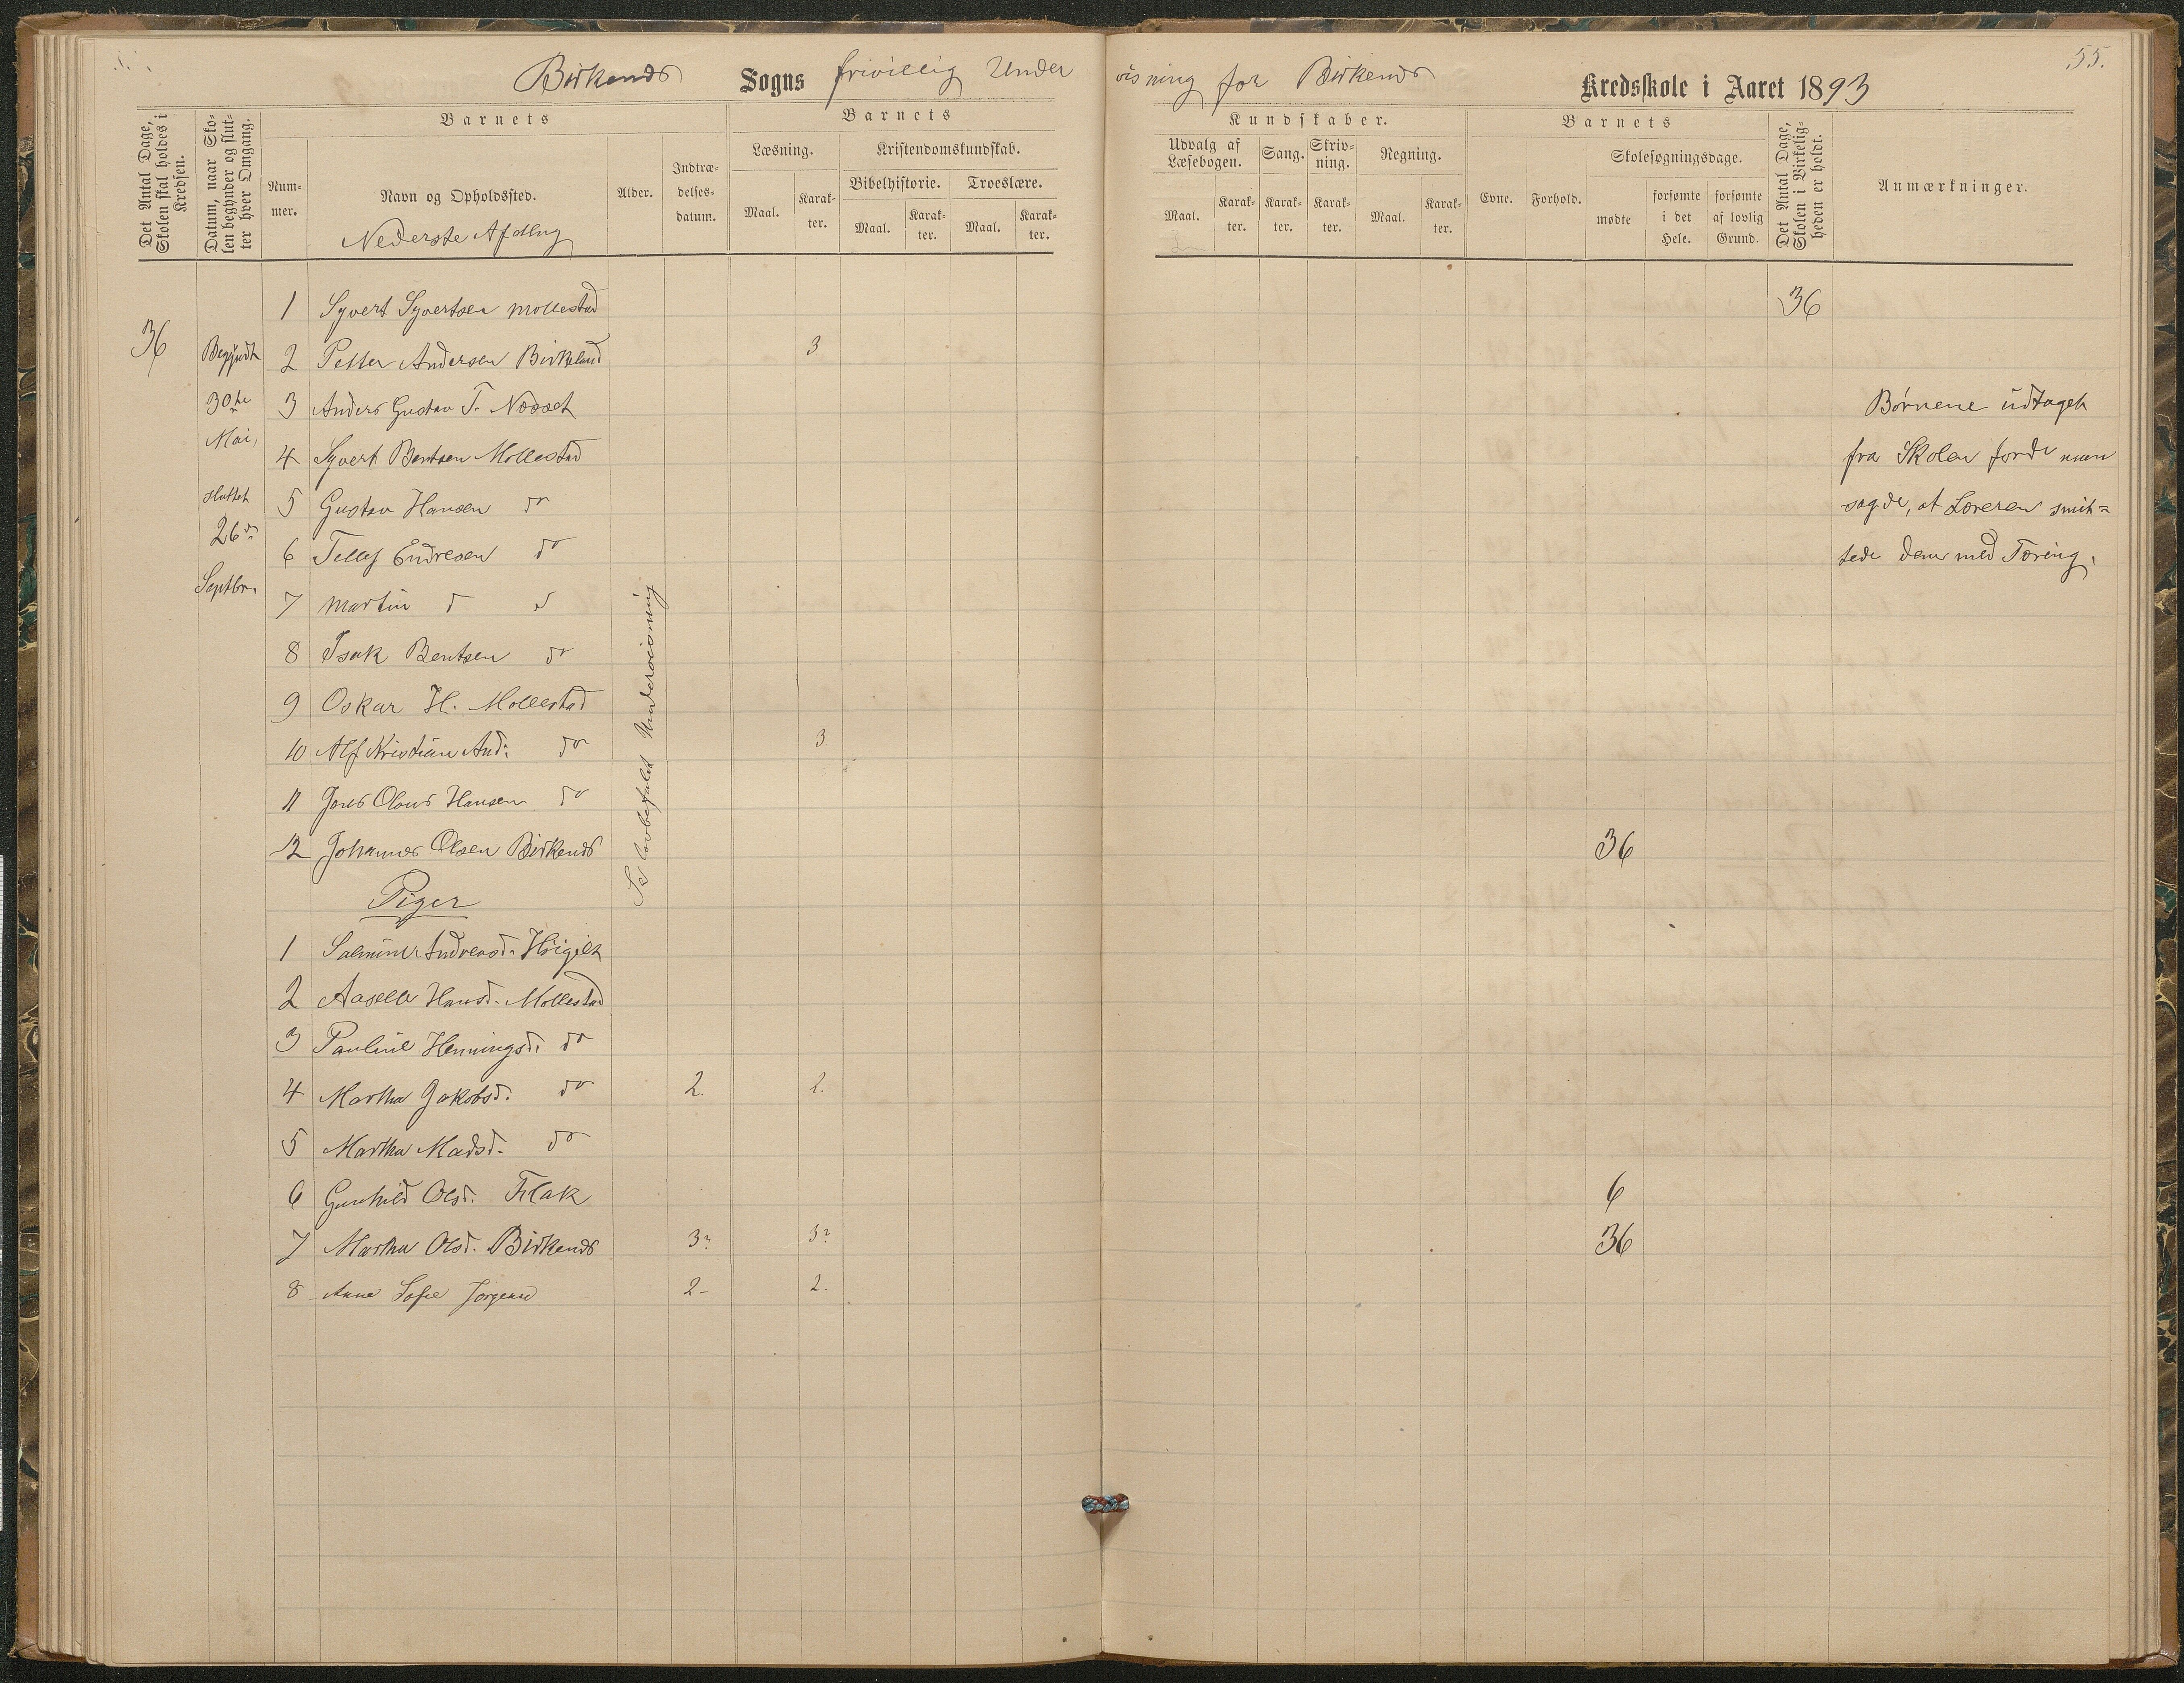 55.
Birkenes Sogns frivillig Undervisning for Birkenes Kredsskole i Aaret 1893
Det Antal Dage, Skolen skal holdes i Kredsen.
Datum, naar Skolen begynder og slutter hver Omgang.
Barnets
Nummer.
Navn og Opholdssted.
Nederste Afdlng
Alder.
Indtrædelsesdatum.
Barnets
Læsning.
Maal.
Karakter.
Kristendomskundskab.
Bibelhistorie.
Maal.
Karakter.
Troeslære.
Maal.
Karakter.
Kundskaber.
Udvalg af Læsebogen.
Maal.
Karakter.
Sang.
Karakter.
Skrivning.
Karakter.
Regning.
Maal.
Karakter.
Barnets
Evne.
Forhold.
Skolesøgningsdage.
mødte
forsømte i det Hele.
forsømte af lovlig Grund.
Det Antal Dage, Skolen i Virkeligheden er holdt.
Anmærkninger.
36
Begyndt
30te
Mai,
sluttet
26de
Septbr.
1 Syvert Syvertsen Mollestad 36
2 Petter Andersen Birkeland 3
3 Anders Gustav T. Næset
4 Syvert Bentsen Mollestad
5 Gustav Hansen do
6 Tellef Endresen do
7 Martin d d
8 Isak Bentsen do
9 Oskar H. Mollestad
10 Alf Kristian And: do 3
11 Jens Olaus Hansen do
12 Johannes Olsen Birkenes 36
Piger
1 Salmine Andreasd. Høigilt
2 Aaselle Hansd. Mollestad
3 Pauline Henningsd. do
4 Martha Jakobsd. do 2. 2.
5 Martha Madsd. do
6 Gunhild Olsd. Flak 6
7 Martha Olsd. Birkenes 3? 3? 36
8 Anna Sofie Jørgensd 2- 2.
lovbefalet Undervisning
Børnene udtaget
fra Skolen fordi man
sagde, at Læreren smit=
tede dem med Tæring.